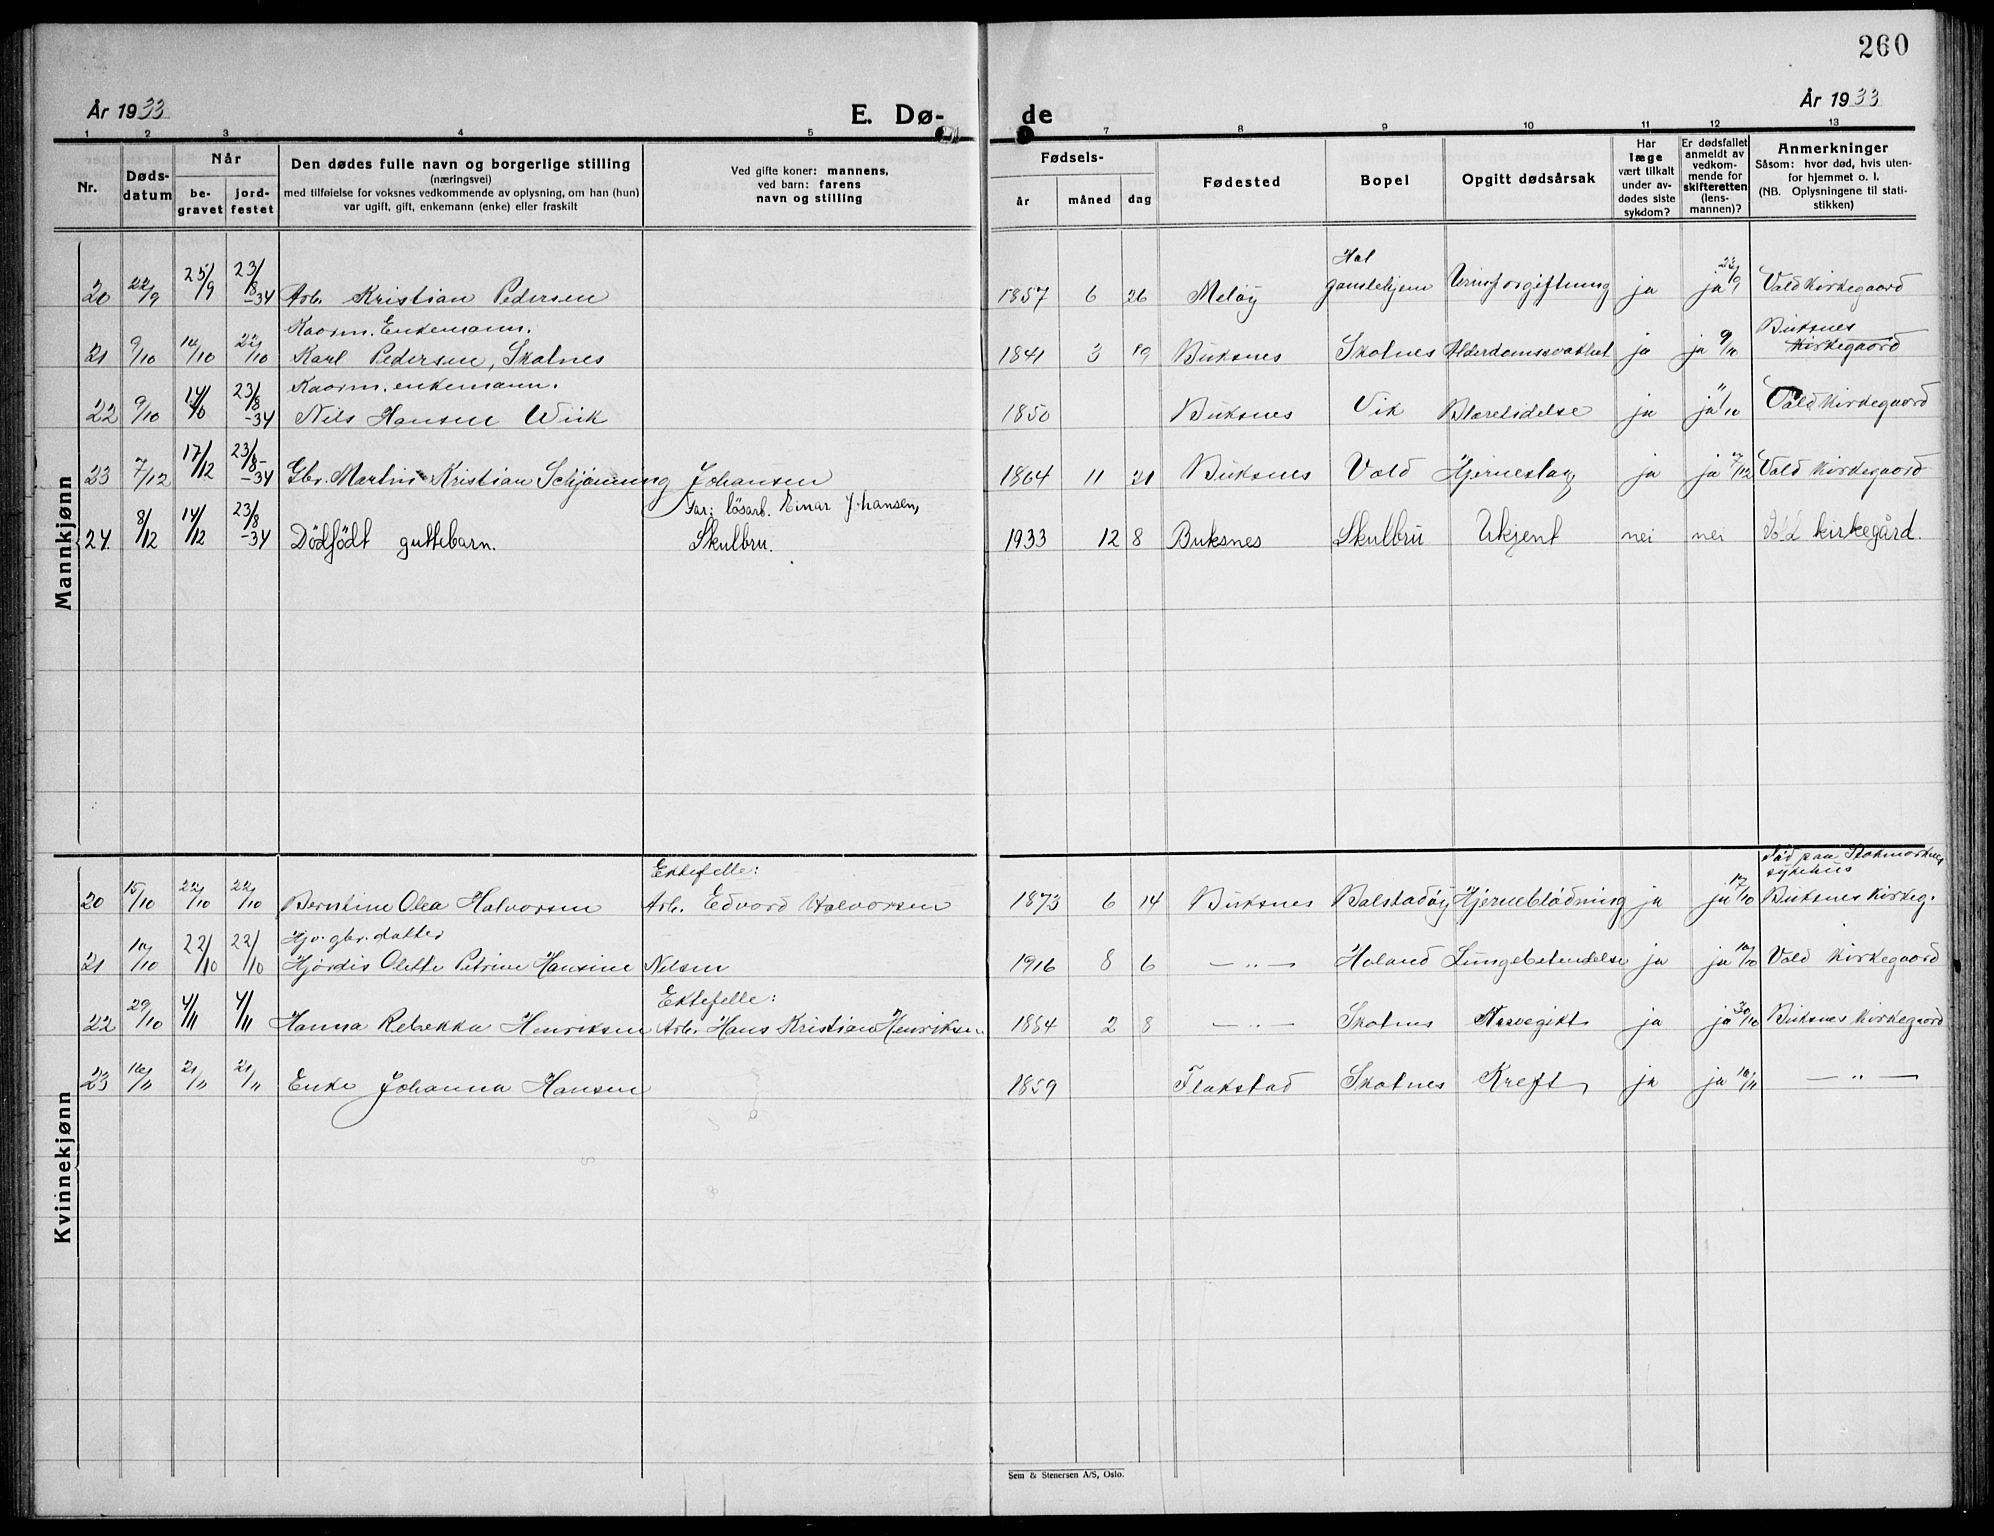 260
År 1933
E. Dø-
de
År 1933
1 2 3 4 5 7 8 9 10 11 12 13
Nr.
Døds-
datum
Når
be-
gravet
jord-
festet
Den dødes fulle navn og borgerlige stilling
(næringsvei)
med tilføielse for voksnes vedkommende av oplysning, om han (hun)
var ugift, gift, enkemann (enke) eller fraskilt
Ved gifte koner: mannens,
ved barn: farens
navn og stilling
Fødsels-
år måned dag
Fødested
Bopel
Opgitt dødsårsak
Har
læge
vært tilkalt
under av-
dødes siste
sykdom?
Er dødsfallet
anmeldt av
vedkom-
mende for
skifteretten
(lens-
mannen)?
Anmerkninger
Såsom: hvor død, hvis uten-
for hjemmet o. l.
(NB. Oplysningene til stati-
stikken)
Mannkjønn
20 22/9 25/9 23/8-34 Arb. Kristian Pedersen 1857 6 26 Meløy Hol gamlehjem Urinforgiftning ja ja 23/9 Vold Kirkegaard
Kaarm. Enkemann.
21 9/10 14/10 22/10 Karl Pedersen, Skotnes 1841 3 19 Buksnes Skotnes Alderdomssvakhet ja ja 9/10 Buksnes Kirkegaard
Kaarm. enkemann.
22 9/10 14/10 23/8-34 Nils Hansen Wik 1850 Buksnes Vik Blærelidelse ja ja 11/10 Vold Kirkegaard
23 7/12 17/12 23/8-34 Gbr. Martin Kristian Schjønning Johansen 1864 11 21 Buksnes Vold Hjerneslag ja ja 7/12 Vold Kirkegaard
Far: løsarb. Einar Johansen,
24. 8/12 14/12 23/8-34 Dødfødt guttebarn. Skulbru. 1933 12 8 Buksnes Skulbru Ukjent nei nei Vold kirkegård.
Kvinnekjønn
Ektefelle:
Død paa Stokmarknes
sykehus
20 15/10 22/10 22/10 Berntine Olea Halvorsen Arb. Edvard Halvorsen 1873 6 14 Buksnes Balstadøy Hjerneblødning ja ja 17/10 Buksnes Kirkeg.
Hjv. gbr. datter
21 10/10 22/10 22/10 Hjørdis Olette Petrine Hansine Nilsen 1916 8 6 — " — Holand Lungebetendelse ja ja 10/10 Vold Kirkegaard
Ektefelle:
22 29/10 4/11 4/11 Hanna Rebekka Henriksen Arb. Hans Kristian Henriksen 1864 2 8 — " — Skotnes Nervegikt ja ja 30/10 Buksnes Kirkegaard
23 16/11 21/11 21/11 Enke Johanna Hansen 1859 Flakstad Skotnes Kreft ja ja 16/11 — " —
Sem & Stenersen A/S, Oslo.